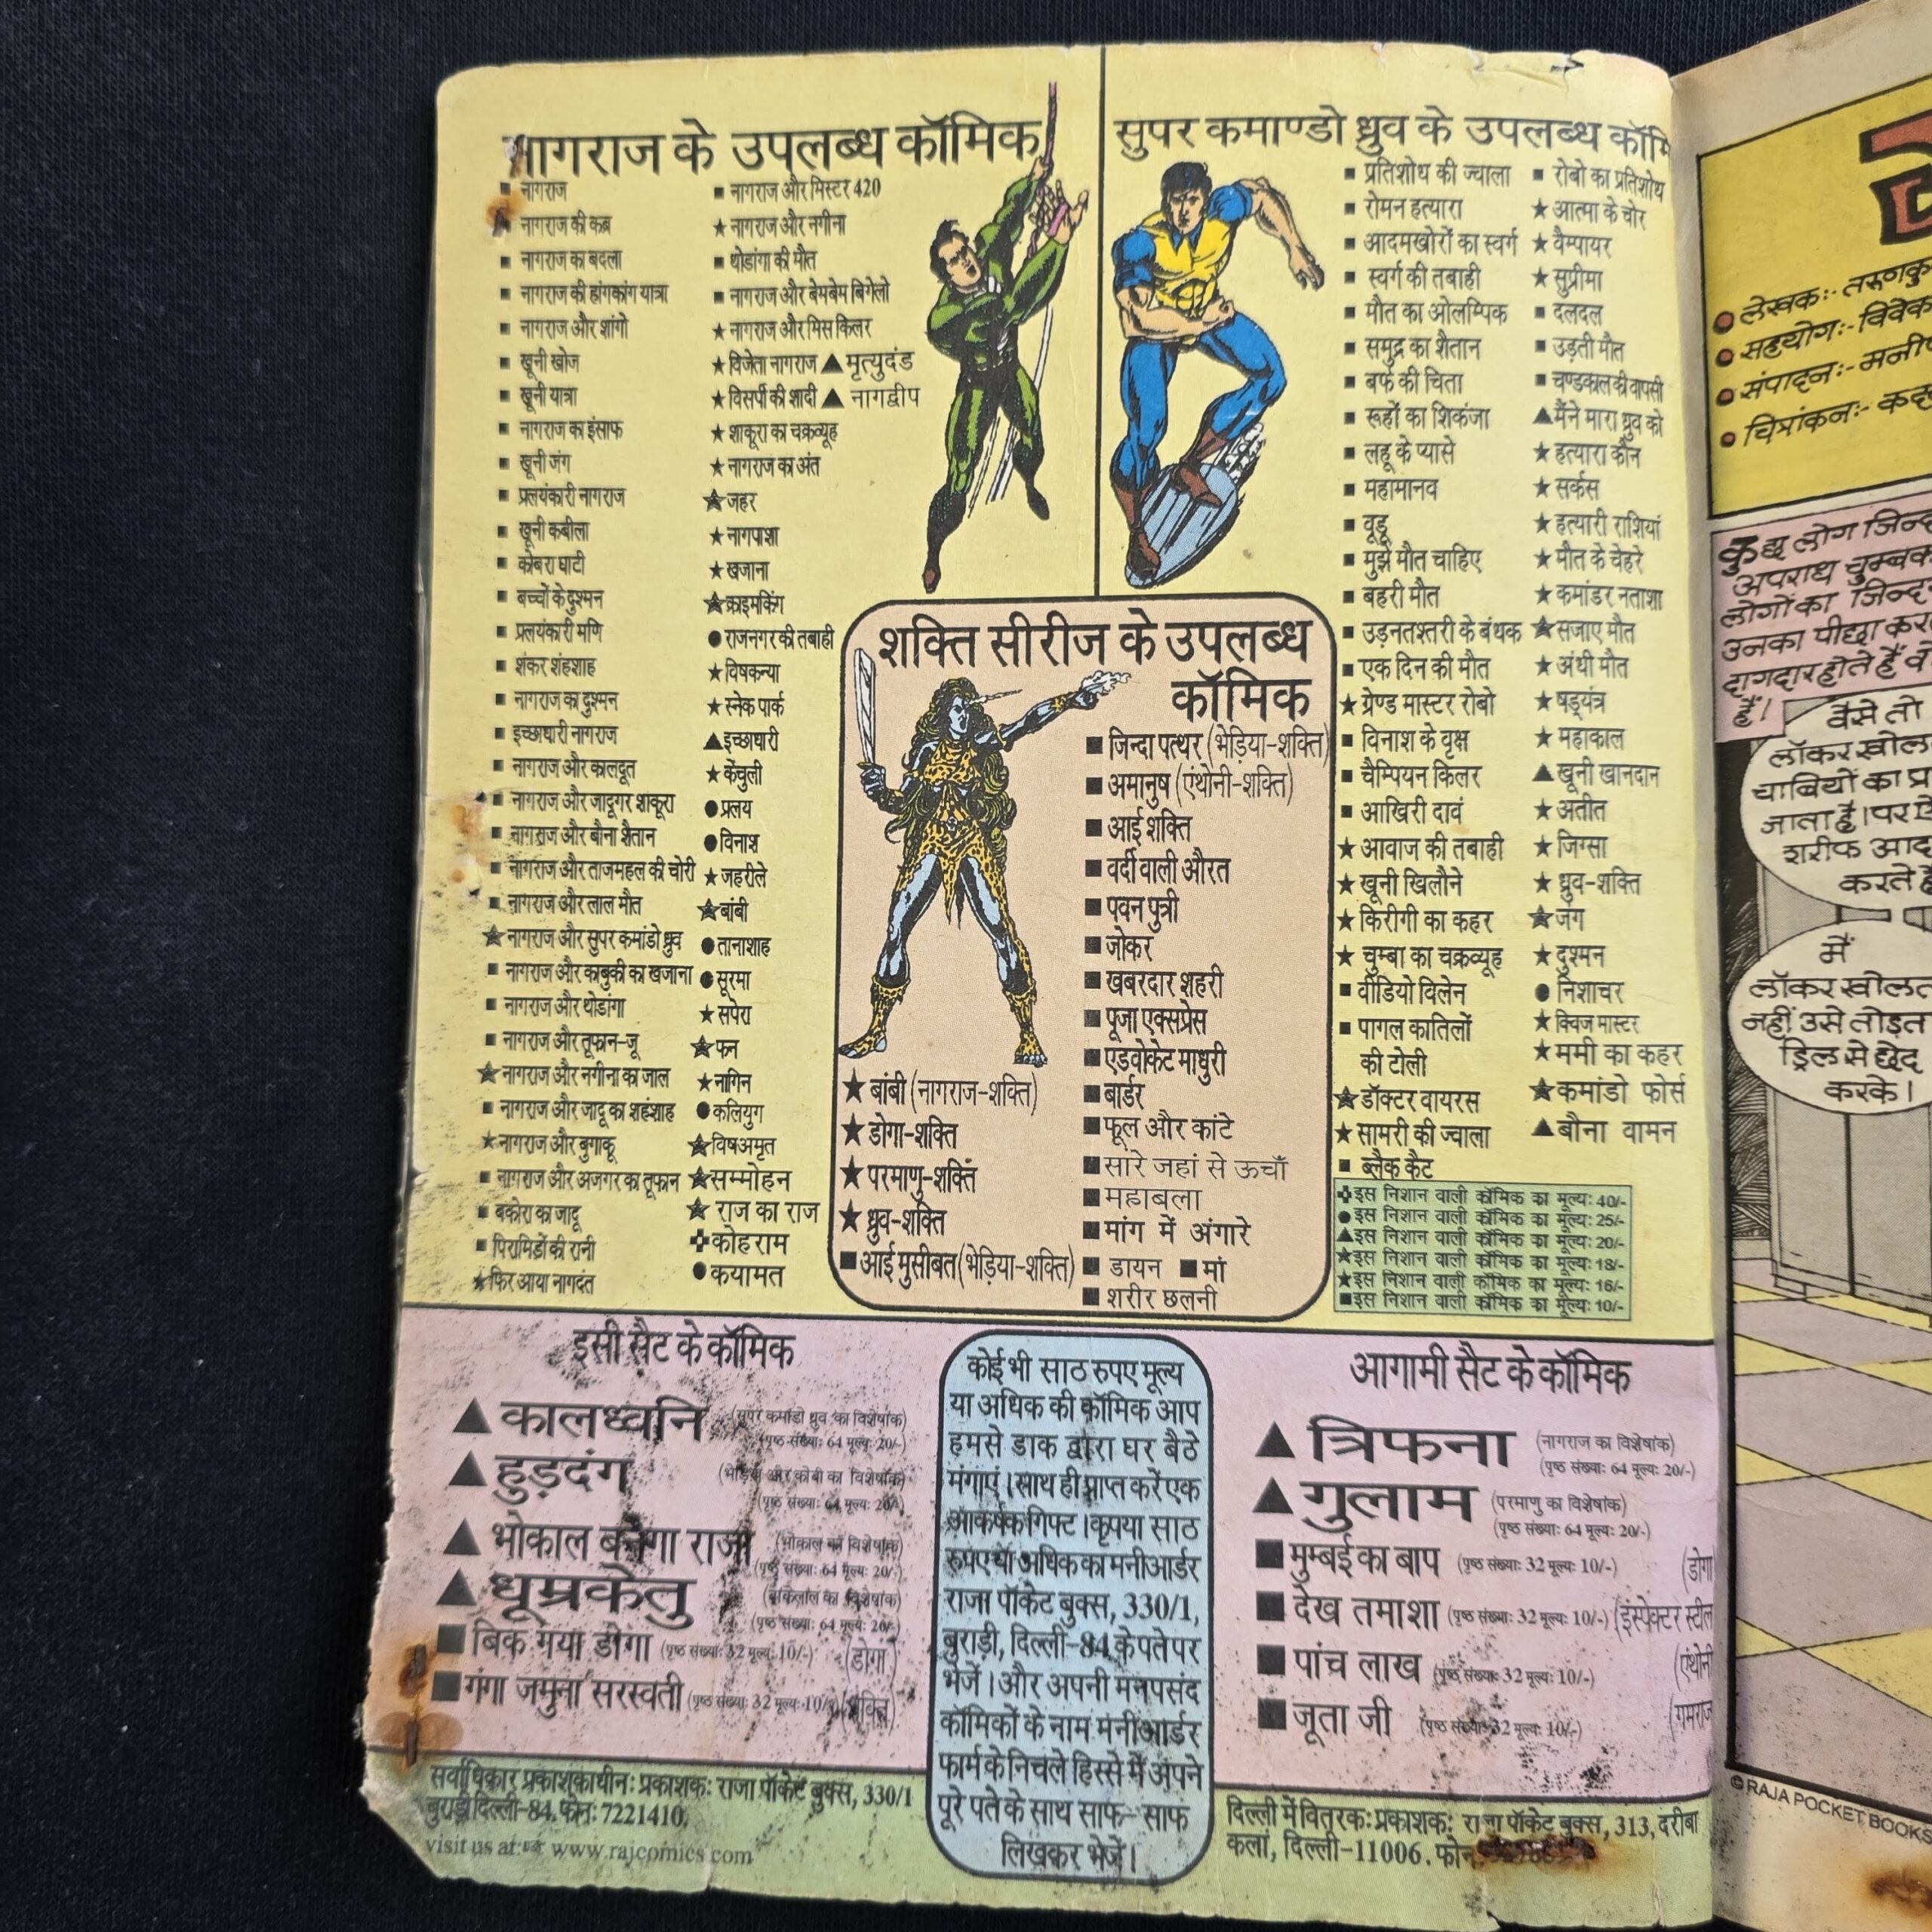 नागराज के उपलब्ध कॉमिक
नागराज
नागराज की कब्र
नागराज का बदला
नागराज की हांगकांग यात्रा
नागराज और शांगो
खूनी खोज
खूनी यात्रा
नागराज का इंसाफ
खूनी जंग
प्रलयंकारी नागराज
खूनी कबीला
कोबरा घाटी
बच्चों के दुश्मन
प्रलयंकारी मणि
शंकर शंहशाह
नागराज का दुश्मन
इच्छाधारी नागराज
नागराज और कालदूत
नागराज और जादूगर शाकूरा
नागराज और बौना शैतान
नागराज और ताजमहल की चोरी
नागराज और लाल मौत
नागराज और सुपर कमांडो ध्रुव
नागराज और काबुकी का खजाना
नागराज और थोडांगा
नागराज और तूफान-जू
नागराज और नगीना का जाल
नागराज और जादू का शहंशाह
नागराज और बुगाकू
नागराज और अजगर का तूफान
बकोरा का जादू
पिरामिडों की रानी
फिर आया नागदंत
नागराज और मिस्टर 420
नागराज और नगीना
थोडांगा की मौत
नागराज और बेमबेम बिगेलो
नागराज और मिस किलर
विजेता नागराज ▲ मृत्युदंड
विसर्पी की शादी ▲ नागद्वीप
शाकूरा का चक्रव्यूह
नागराज का अंत
जहर
नागपाशा
खजाना
क्राइमकिंग
राजनगर की तबाही
विषकन्या
स्नेक पार्क
इच्छाधारी
केंचुली
प्रलय
विनाश
जहरीले
बांबी
तानाशाह
सूरमा
सपेरा
फन
नागिन
कलियुग
विषअमृत
सम्मोहन
राज का राज
कोहराम
कयामत
सुपर कमाण्डो ध्रुव के उपलब्ध कॉमि
प्रतिशोध की ज्वाला
रोमन हत्यारा
आदमखोरों का स्वर्ग
स्वर्ग की तबाही
मौत का ओलम्पिक
समुद्र का शैतान
बर्फ की चिता
रूहों का शिकंजा
लहू के प्यासे
महामानव
वूडू
मुझे मौत चाहिए
बहरी मौत
उड़नतश्तरी के बंधक
एक दिन की मौत
ग्रेण्ड मास्टर रोबो
विनाश के वृक्ष
चैम्पियन किलर
आखिरी दावं
आवाज की तबाही
खूनी खिलौने
किरीगी का कहर
चुम्बा का चक्रव्यूह
वीडियो विलेन
पागल कातिलों
की टोली
डॉक्टर वायरस
सामरी की ज्वाला
ब्लैक कैट
रोबो का प्रतिशोध
आत्मा के चोर
वैम्पायर
सुप्रीमा
दलदल
उड़ती मौत
चण्डकाल की वापसी
मैंने मारा ध्रुव को
हत्यारा कौन
सर्कस
हत्यारी राशियां
मौत के चेहरे
कमांडर नताशा
सजाए मौत
अंधी मौत
षड्यंत्र
महाकाल
खूनी खानदान
अतीत
जिग्सा
ध्रुव-शक्ति
जंग
दुश्मन
निशाचर
क्विज मास्टर
ममी का कहर
कमांडो फोर्स
बौना वामन
इस निशान वाली कॉमिक का मूल्य: 40/-
इस निशान वाली कॉमिक का मूल्य: 25/-
इस निशान वाली कॉमिक का मूल्य: 20/-
इस निशान वाली कॉमिक का मूल्य: 18/-
इस निशान वाली कॉमिक का मूल्य: 16/-
इस निशान वाली कॉमिक का मूल्य: 10/-
शक्ति सीरीज के उपलब्ध
कॉमिक
जिन्दा पत्थर (भेड़िया-शक्ति)
अमानुष (एंथोनी-शक्ति)
आई शक्ति
वर्दी वाली औरत
पवन पुत्री
जोकर
खबरदार शहरी
पूजा एक्सप्रेस
एडवोकेट माधुरी
बार्डर
फूल और कांटे
सारे जहां से ऊचाँ
महाबला
मांग में अंगारे
डायन ■ मां
शरीर छलनी
बांबी (नागराज-शक्ति)
डोगा-शक्ति
परमाणु-शक्ति
ध्रुव-शक्ति
आई मुसीबत (भेड़िया-शक्ति)
इसी सैट के कॉमिक
कालध्वनि (सुपर कमांडो ध्रुव का विशेषांक)
(पृष्ठ संख्या: 64 मूल्य: 20/-)
हुड़दंग (भेड़िया और कोबी का विशेषांक)
(पृष्ठ संख्या: 64 मूल्य: 20/-)
भोकाल बनेगा राजा (भोकाल का विशेषांक)
(पृष्ठ संख्या: 64 मूल्य: 20/-)
धूम्रकेतु (बांकेलाल का विशेषांक)
(पृष्ठ संख्या: 64 मूल्य: 20/-)
बिक गया डोगा (पृष्ठ संख्या: 32 मूल्य: 10/-) (डोगा)
गंगा जमुना सरस्वती (पृष्ठ संख्या: 32 मूल्य: 10/-) (शक्ति)
कोई भी साठ रुपए मूल्य
या अधिक की कॉमिक आप
हमसे डाक द्वारा घर बैठे
मंगाएं। साथ ही प्राप्त करें एक
आकर्षक गिफ्ट। कृपया साठ
रुपए या अधिक का मनीआर्डर
राजा पॉकेट बुक्स, 330/1,
बुराड़ी, दिल्ली-84 के पते पर
भेजें। और अपनी मनपसंद
कॉमिकों के नाम मनीआर्डर
फार्म के निचले हिस्से में अपने
पूरे पते के साथ साफ- साफ
लिखकर भेजें।
आगामी सैट के कॉमिक
त्रिफना (नागराज का विशेषांक)
(पृष्ठ संख्या: 64 मूल्य: 20/-)
गुलाम (परमाणु का विशेषांक)
(पृष्ठ संख्या: 64 मूल्य: 20/-)
मुम्बई का बाप (पृष्ठ संख्या: 32 मूल्य: 10/-) (डोगा
देख तमाशा (पृष्ठ संख्या: 32 मूल्य: 10/-) (इंस्पेक्टर स्टील
पांच लाख (पृष्ठ संख्या: 32 मूल्य: 10/-) (एंथोनी
जूता जी (पृष्ठ संख्या: 32 मूल्य: 10/-) (गमराज
सर्वाधिकार प्रकाशकाधीन: प्रकाशक: राजा पॉकेट बुक्स, 330/1
बुराड़ी दिल्ली-84. फोन: 7221410.
visit us at: www.rajcomics.com
दिल्ली में वितरक: प्रकाशक: राजा पॉकेट बुक्स, 313, दरीबा
कलां, दिल्ली-11006. फोन
लेखक:- तरुणकु
सहयोग:- विवेक
संपादन:- मनीष
चित्रांकन:- कद
कुछ लोग जिन्द
अपराध चुम्बक
लोगों का जिन्द
उनका पीछा कर
दागदार होते हैं
हैं।
वैसे तो
लॉकर खोल
चाबियों का प्र
जाता है। पर
शरीफ आद
करते हैं
मैं
लॉकर खोलत
नहीं उसे तोड़त
ड्रिल से छेद
करके।
© RAJA POCKET BOOKS